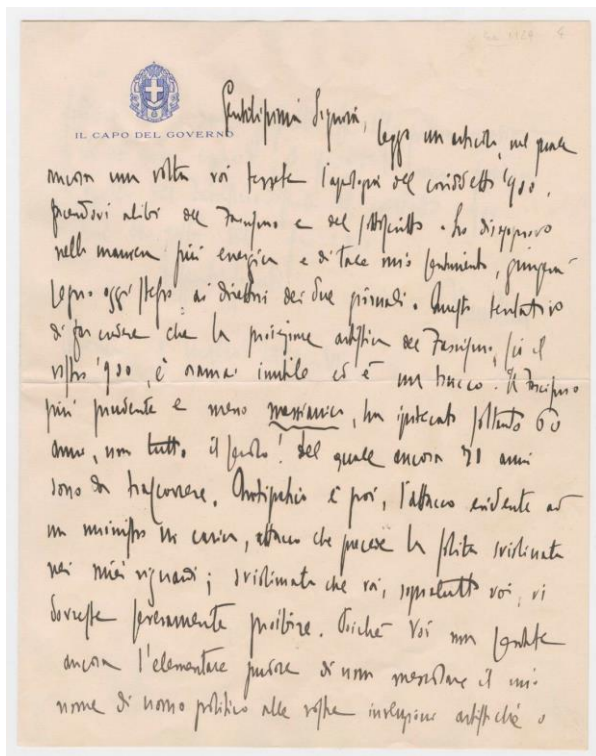 IL CAPO DEL GOVERNO
Gentilissima Signora,
leggo un articolo, nel quale
ancora una volta voi tessete l'apologia del cosidetto '900,
facendovi alibi del Fascismo e del sottoscritto. Lo disapprovo
nella maniera più energica e di tale mio sentimento, giungerà
segno oggi stesso ai direttori dei due giornali. Questo tentativo
di far credere che la proiezione artistica del Fascismo, sia il
vostro '900, è oramai inutile ed è un trucco. Il Fascismo
più prudente e meno messianico, ha ipotecato soltanto 60
anni, non tutto il secolo! del quale ancora 71 anni
sono da trascorrere. Antipatico è poi, l'attacco evidente ad
un ministro in carica, attacco che precede la solita sviolinata
nei miei riguardi; sviolinata che voi, sopratutto voi, vi
dovreste severamente proibire. Poiché voi non sentite
ancora l'elementare pudore di non mescolare il mio
nome di uomo politico alle vostre invenzioni artistiche o